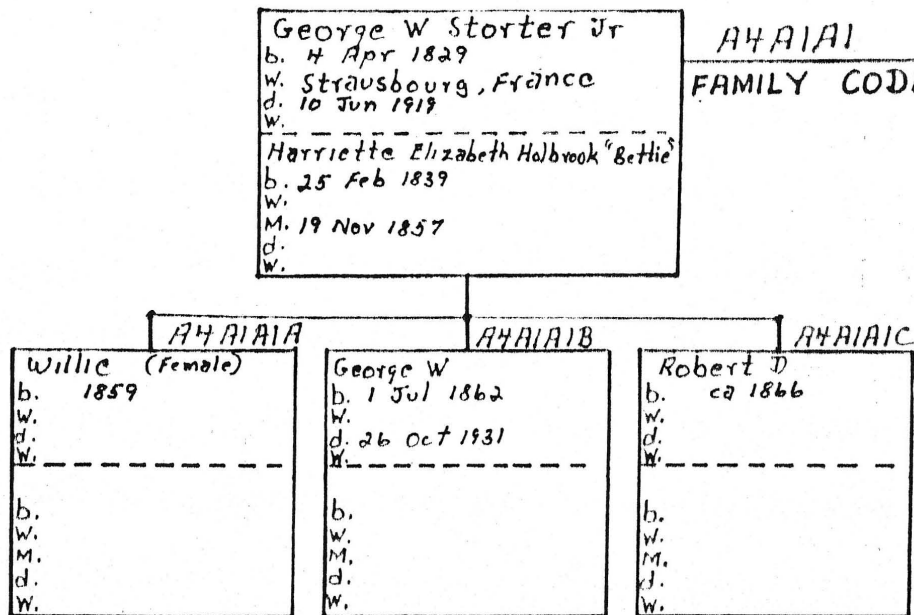 George W Storter Jr
b. 4 Apr 1829
W. Strausbourg, France
d. 10 Jun 1919
W.
Harriette Elizabeth Holbrook "Bettie"
b. 25 Feb 1839
W.
M. 19 Nov 1857
d.
W.
A4A1A1
FAMILY COD
A4A1A1A
Willie (Female)
b. 1859
W.
d.
W.
b.
W.
M.
d.
W.
A4A1A1B
George W
b. 1 Jul 1862
W.
d. 26 Oct 1931
W.
b.
W.
M.
d.
W.
A4A1A1C
Robert D
b. ca 1866
W.
d.
W.
b.
W.
M.
d.
W.